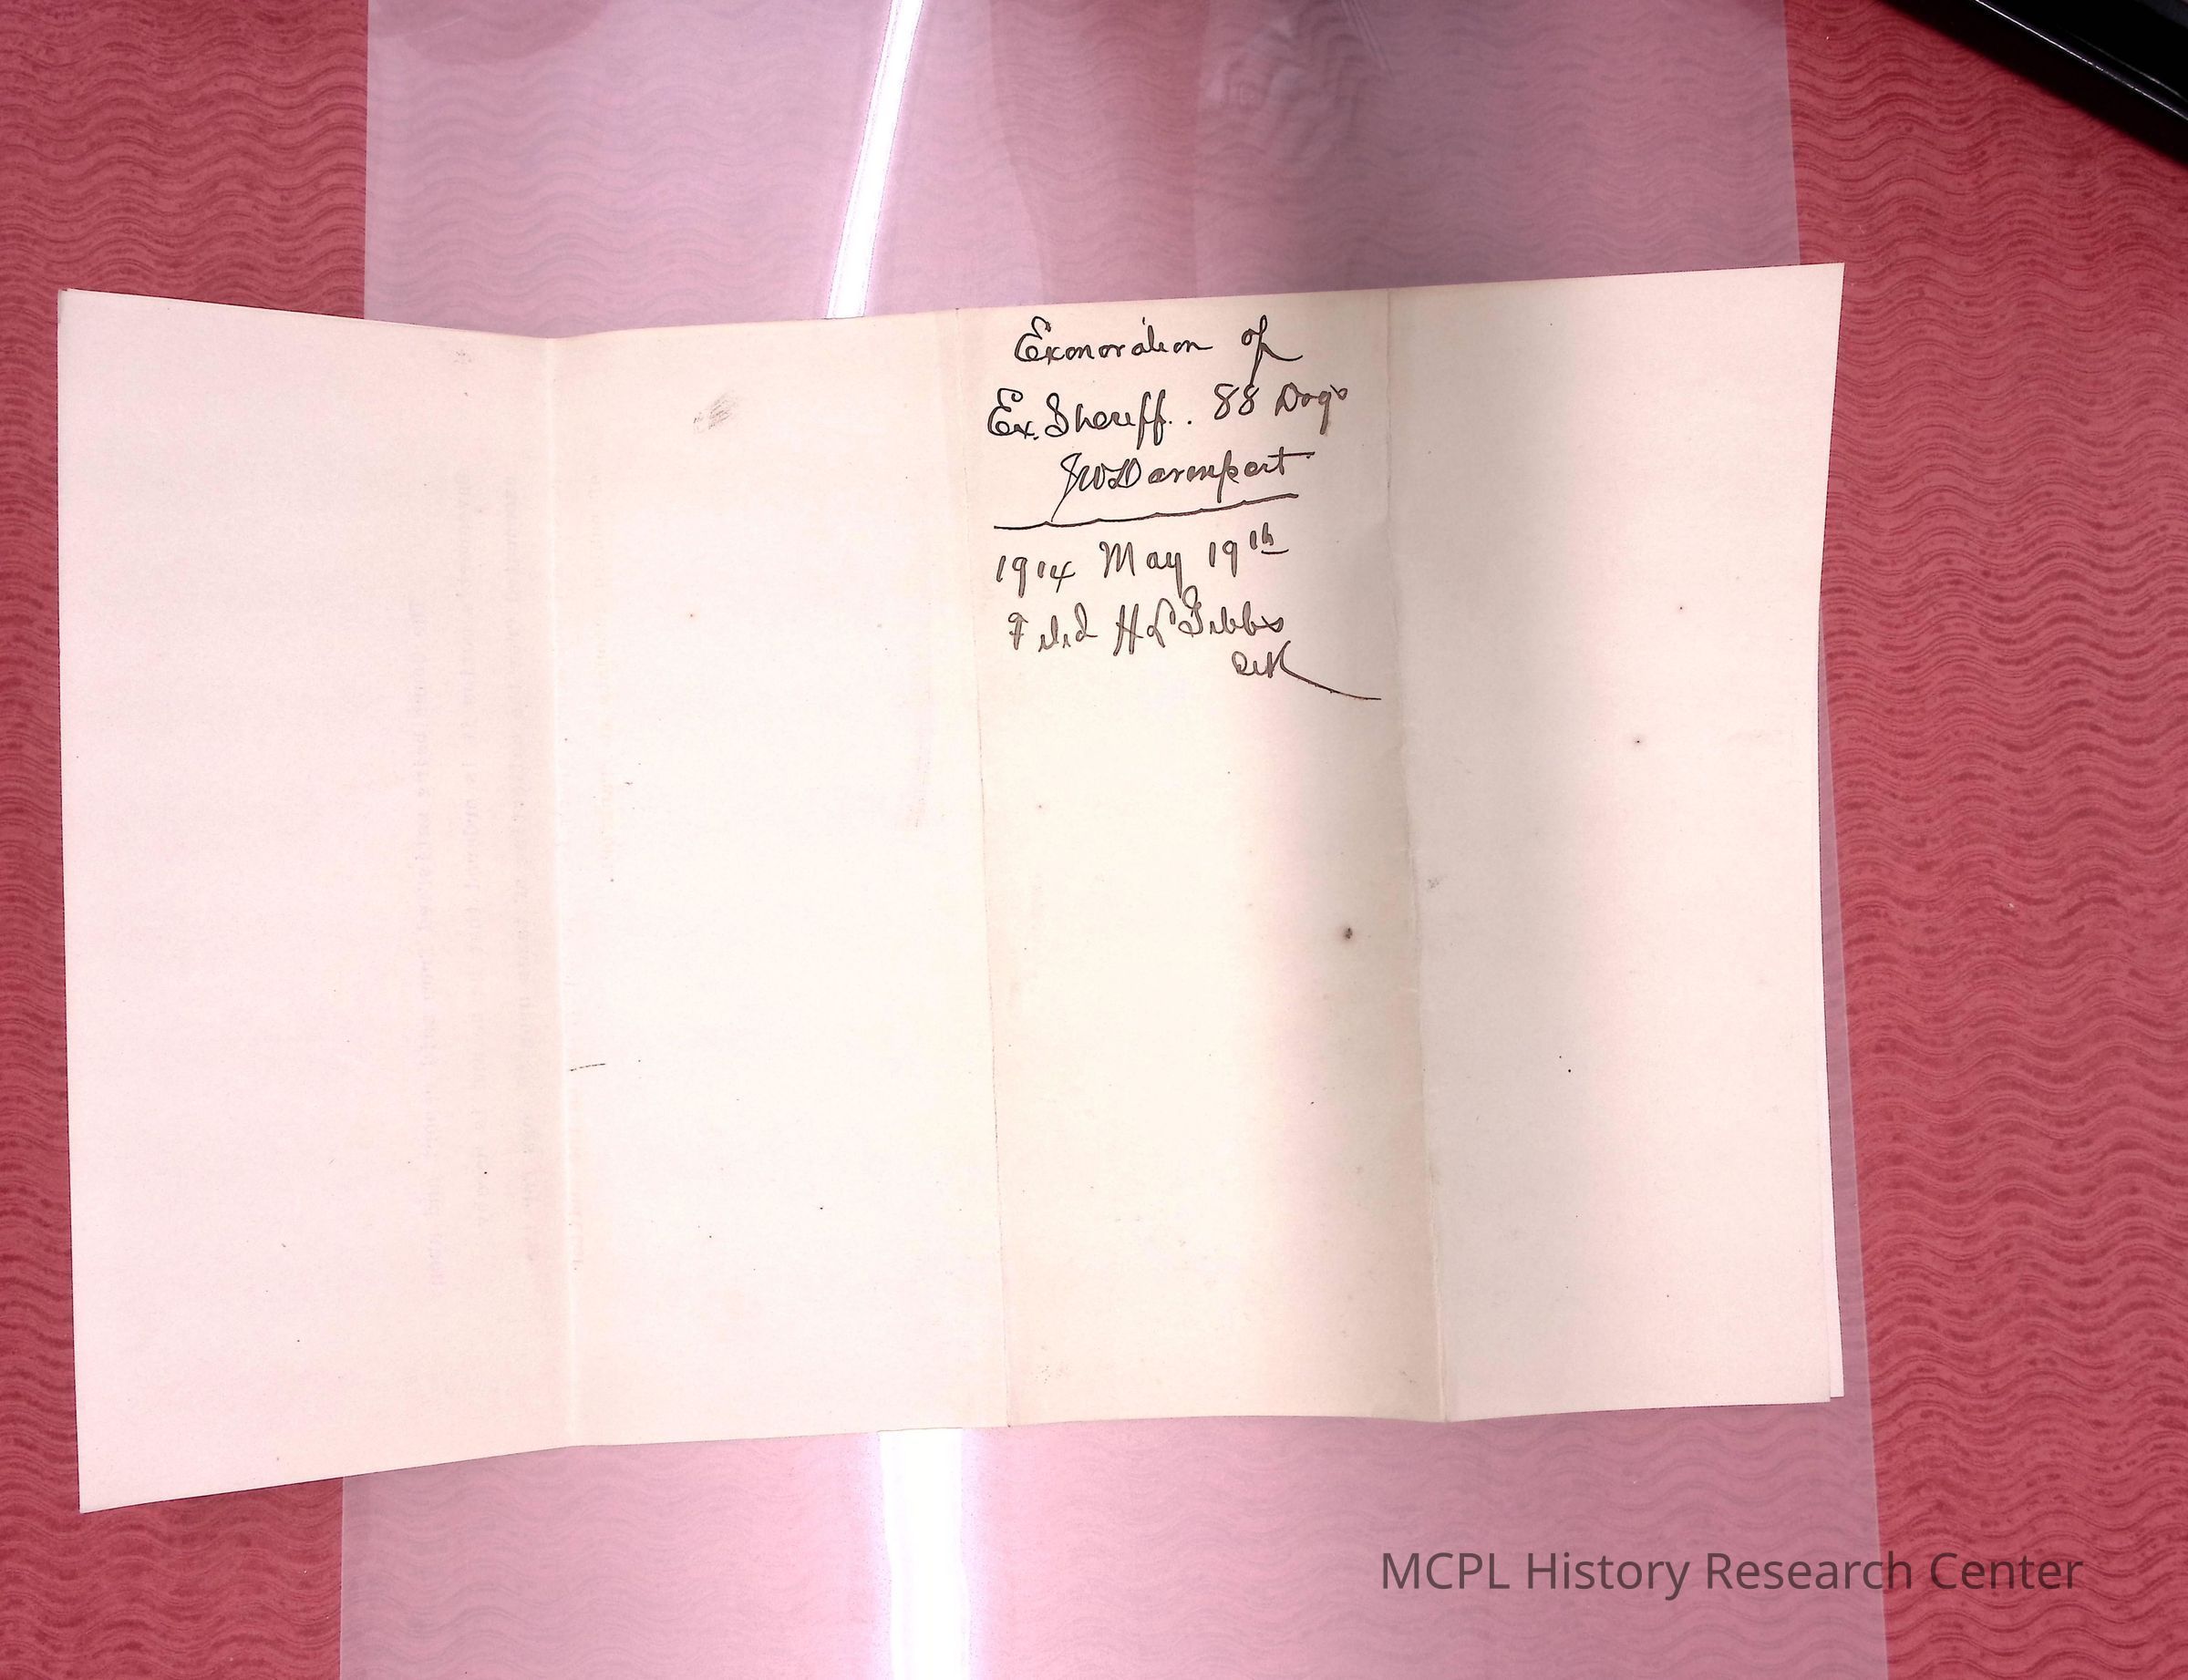 Exonoration of
Ex. Sheriff. 88 Dogs
JW Davenport
1914 May 19th
Filed H L Gibbs
Clk
MCPL History Research Center